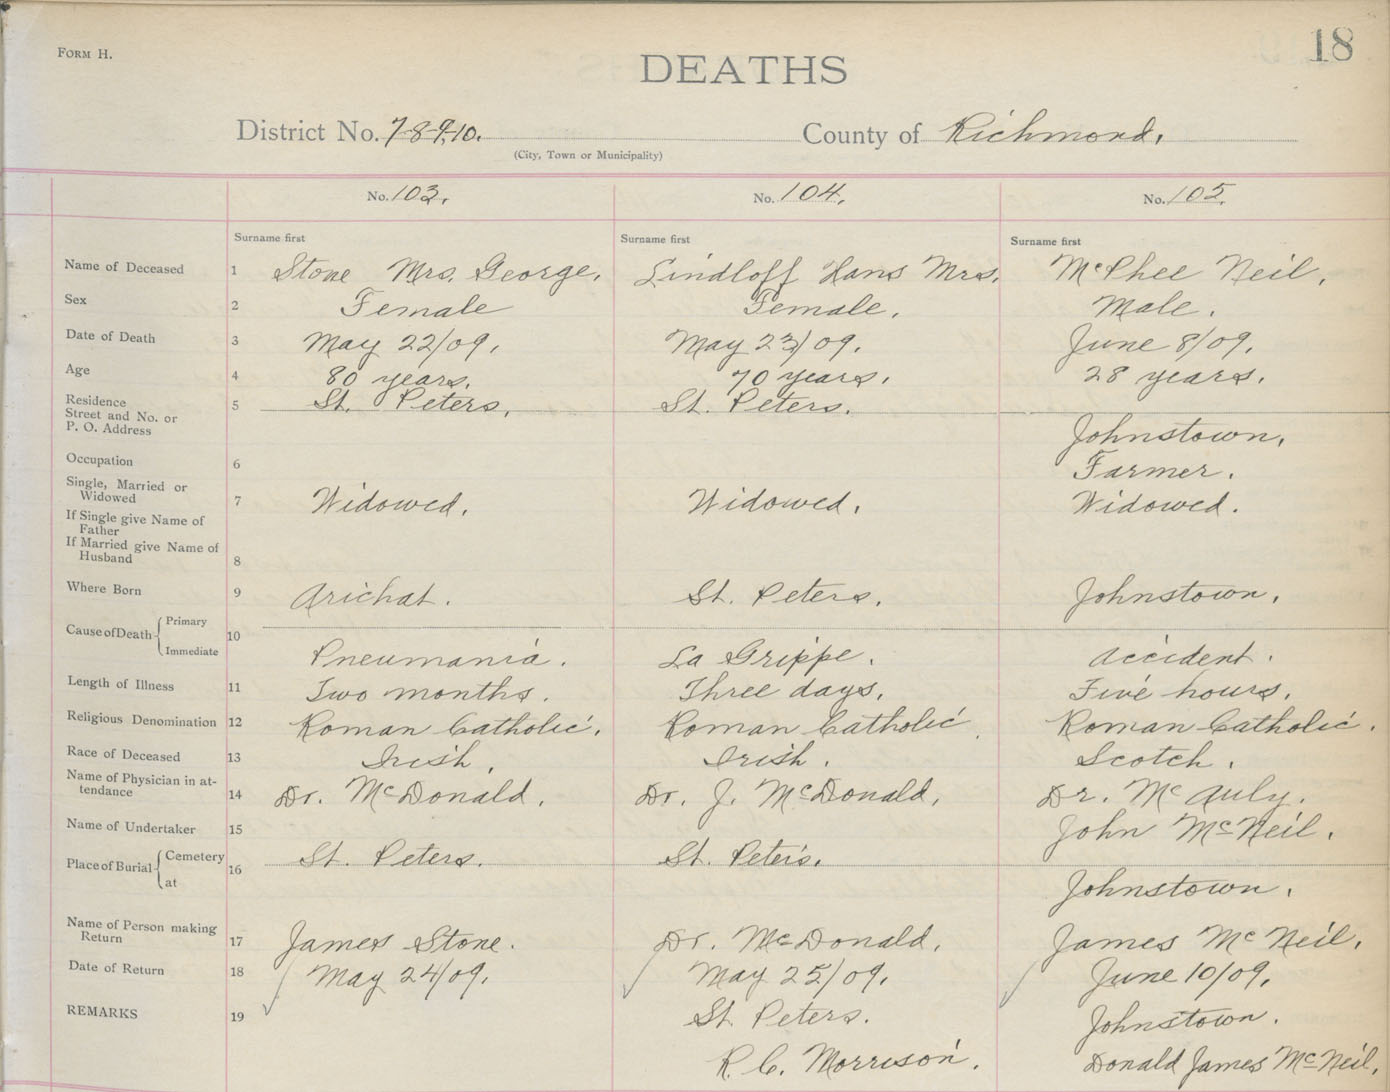 18
FORM H.
DEATHS
District No. 7-8-9-10. County of Richmond.
(City, Town or Municipality)
No. 103. No. 104. No. 105.
Surname first Surname first Surname first
Name of Deceased 1 Stone Mrs. George. Lindloff Hans Mrs. McPhee Neil.
Sex 2 Female Female. Male.
Date of Death 3 May 22/09. May 23/09. June 8/09.
Age 4 80 years. 70 years. 28 years.
Residence 5 St. Peters. St. Peters.
Street and No. or
P. O. Address Johnstown.
Occupation 6 Farmer.
Single, Married or
Widowed 7 Widowed. Widowed. Widowed.
If Single give Name of
Father
If Married give Name of
Husband 8
Where Born 9 Arichat. St. Peters. Johnstown.
Cause of Death 10 Primary
Immediate Pneumania. La Grippe. Accident.
Length of Illness 11 Two months. Three days. Five hours.
Religious Denomination 12 Roman Catholic. Roman Catholic. Roman Catholic.
Race of Deceased 13 Irish. Irish. Scotch.
Name of Physician in at-
tendance 14 Dr. McDonald. Dr. J. McDonald. Dr. McAuly.
Name of Undertaker 15 John McNeil.
Place of Burial 16 Cemetery St. Peters. St. Peters.
at Johnstown.
Name of Person making
Return 17 James Stone. Dr. McDonald. James McNeil.
Date of Return 18 May 24/09. May 25/09. June 10/09.
REMARKS 19 St. Peters. Johnstown.
R. C. Morrison. Donald James McNeil.